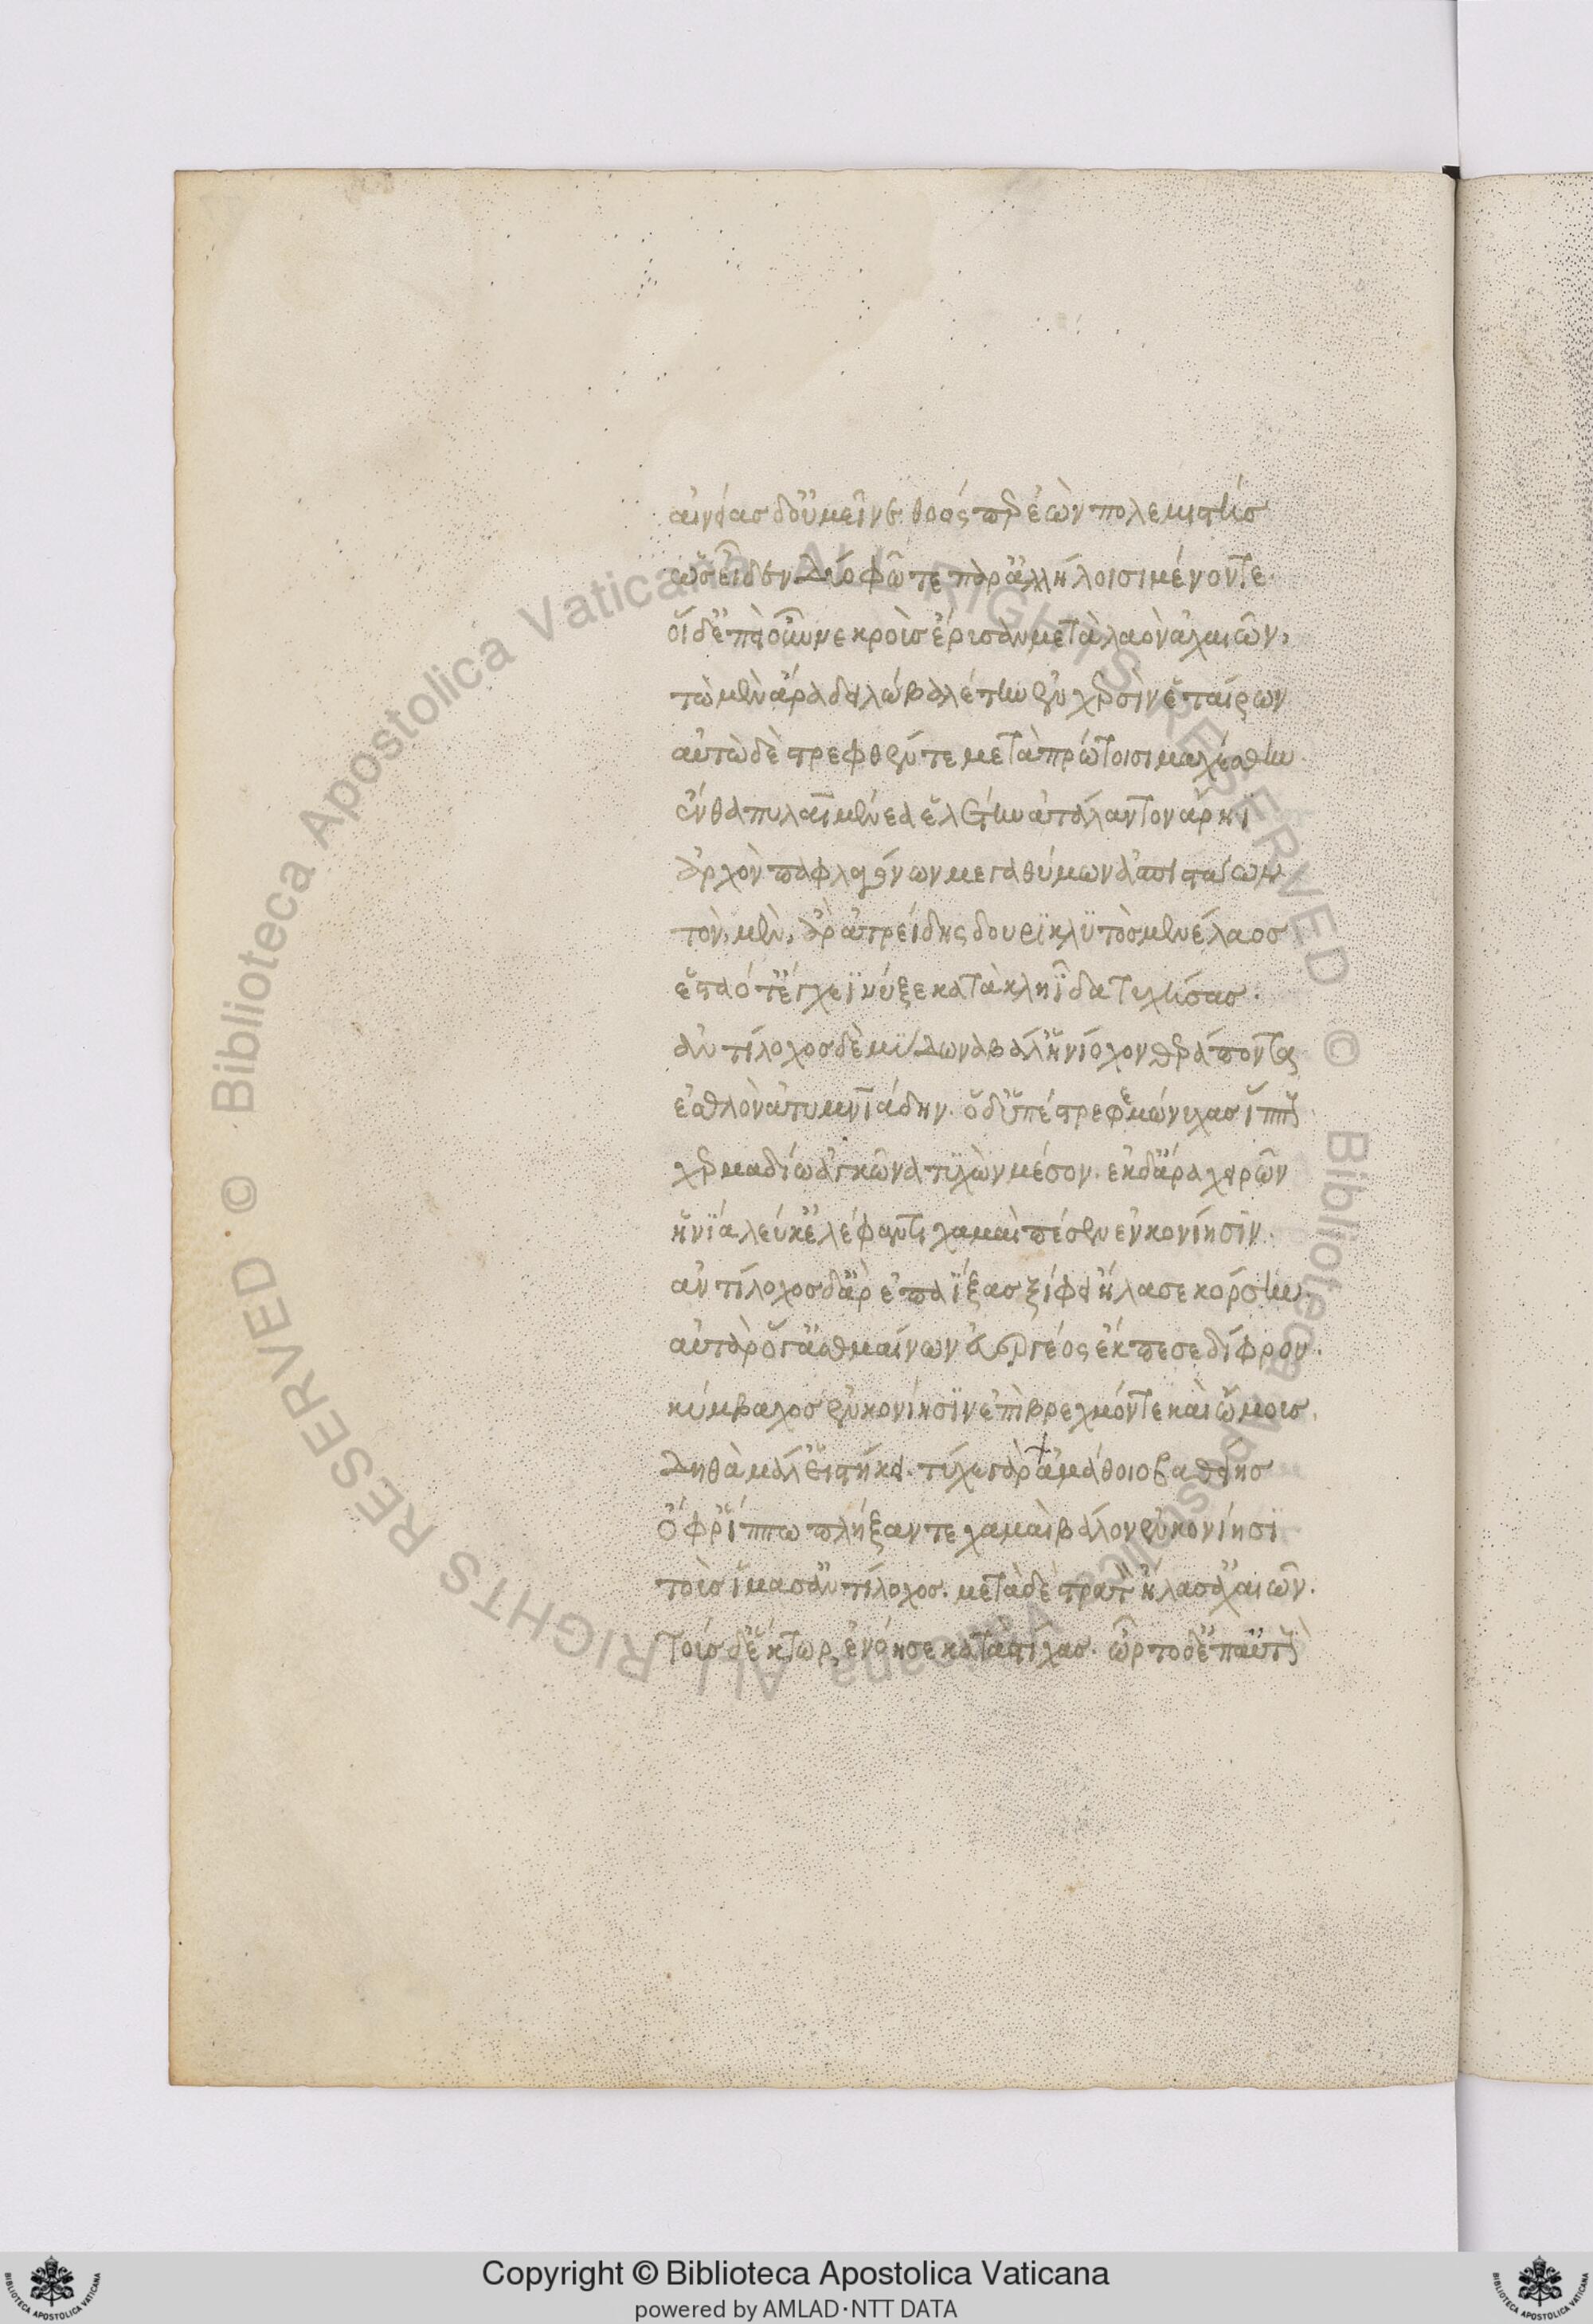 αἰνείας δ' οὐ μεῖνε θοός περ ἐὼν πολεμιστής
ὡς εἶδεν δύο φῶτε παρ' ἀλλήλοισι μένοντε.
οἱ δ' ἐπεὶ οὖν νεκροὺς ἔρυσαν μετὰ λαὸν ἀχαιῶν,
τὼ μὲν ἄρα δειλὼ βαλέτην ἐν χερσὶν ἑταίρων
αὐτὼ δὲ στρεφθέντε μετὰ πρώτοισι μαχέσθην.
ἔνθα πυλαιμένεα ἑλέτην ἀτάλαντον ἄρηϊ
ἀρχὸν παφλαγόνων μεγαθύμων ἀσπιστάων
τὸν μὲν ἂρ ἀτρείδης δουρϊκλϋτὸς μενέλαος
ἑσταότ' ἔγχεϊ νύξε κατὰ κληῗδα τυχήσας.
ἀντίλοχος δὲ μύδωνα βάλ' ἡνίοχον θεράποντα
ἐσθλὸν ἀτυμνιάδην. ὁ δ' ὑπέστρεφε μώνυχας ἵππους
χερμαδίω ἀγκῶνα τυχὼν μέσον. ἐκ δ' ἄρα χειρῶν
ἡνία λεύκ' ἐλέφαντι χαμαὶ πέσεν ἐν κονίησιν.
ἀντίλοχος δ' ἂρ ἐπαΐξας ξίφει ἤλασε κόρσην.
αὐτὰρ ὅγ' ἀσθμαίνων εὐεργέος ἔκπεσε δίφρου.
κύμβαχος ἐν κονίησιν ἐπὶ βρεχμόν τε καὶ ὤμους.
δηθὰ μάλ' εἱστήκει. τύχε γάρ ῥ' ἀμάθοιο βαθείης
ὄφρ' ἵππω πλήξαντε χαμαὶ βάλον ἐν κονίησι
τοὺς ἵμασ' ἀντίλοχος. μετὰ δὲ στρατὸν ἤλασ' ἀχαιῶν.
τοὺς δ' ἕκτωρ ἐνόησε κατὰ στίχας. ὦρτο δ' ἐπ' αὐτοὺς
Copyright © Biblioteca Apostolica Vaticana
powered by AMLAD·NTT DATA